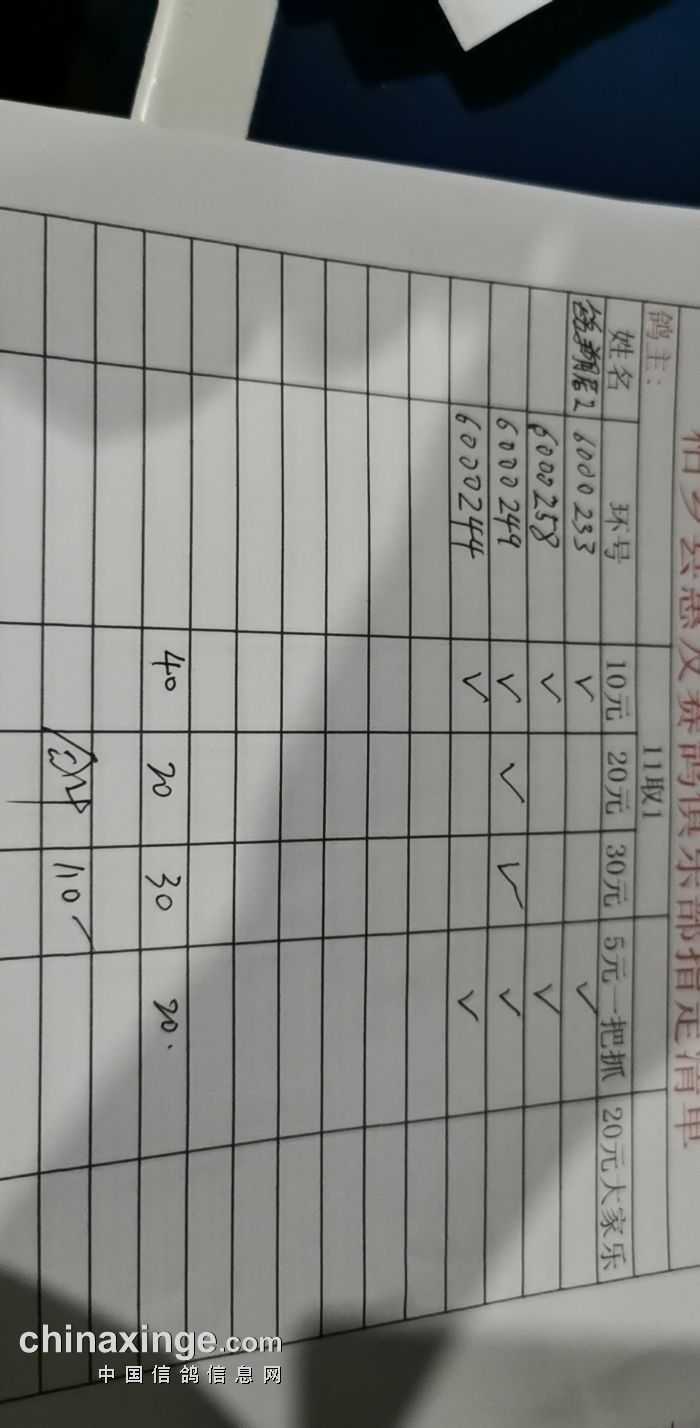 柏乡县惠及赛鸽俱乐部指定清单
鸽主： 11取1
姓名 环号 10元 20元 30元 5元一把抓 20元大家乐
6000233 ✓ ✓
6000258 ✓ ✓
6000249 ✓ ✓ ✓ ✓
6000244 ✓ ✓
40 20 30 20.
合计 110
chinaxinge.com
中国信鸽信息网